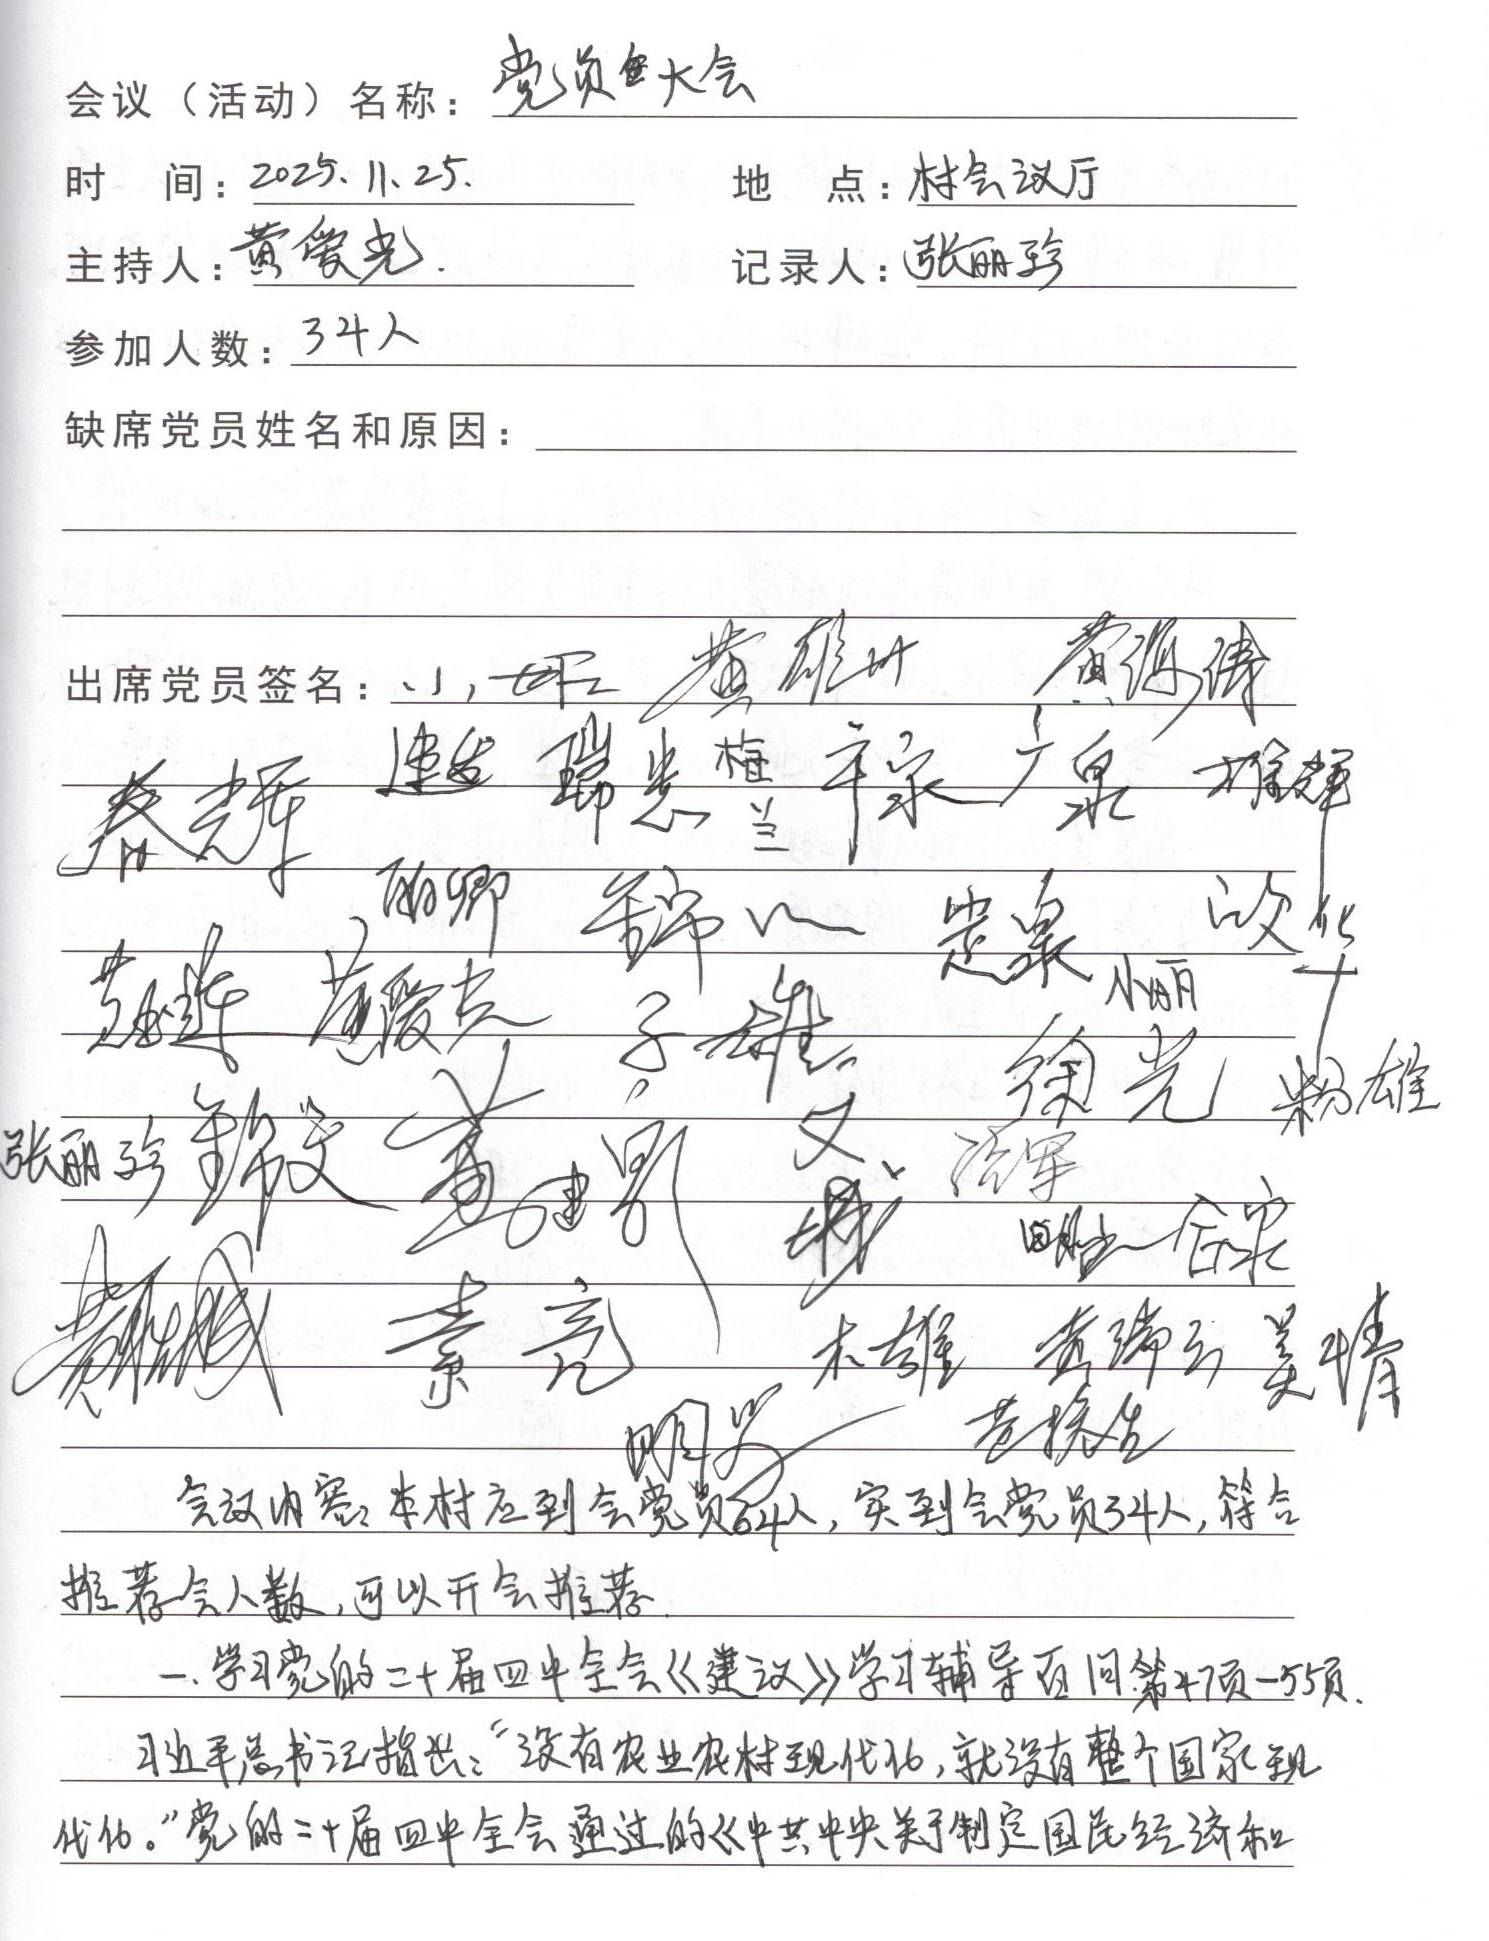 会议（活动）名称：党员大会
时　间：2025.11.25.　地　点：村会议厅
主持人：黄爱光.　记录人：张丽珍
参加人数：34人
缺席党员姓名和原因：
出席党员签名：
建发 瑞忠 梅兰 广泉 雄辉
春辉
丽卿 锦 忠泉
黄爱光 子雄 小丽
徐光
张丽珍 锦文 建影 文城 浩军
素亮 木雄 黄瑞云 美情
明
会议内容：本村应到会党员64人，实到会党员34人，符合
推荐会人数，可以开会推荐.
一.学习党的二十届四中全会《建议》学习辅导百问第47页-55页.
习近平总书记指出：“没有农业农村现代化，就没有整个国家现
代化。”党的二十届四中全会通过的《中共中央关于制定国民经济和